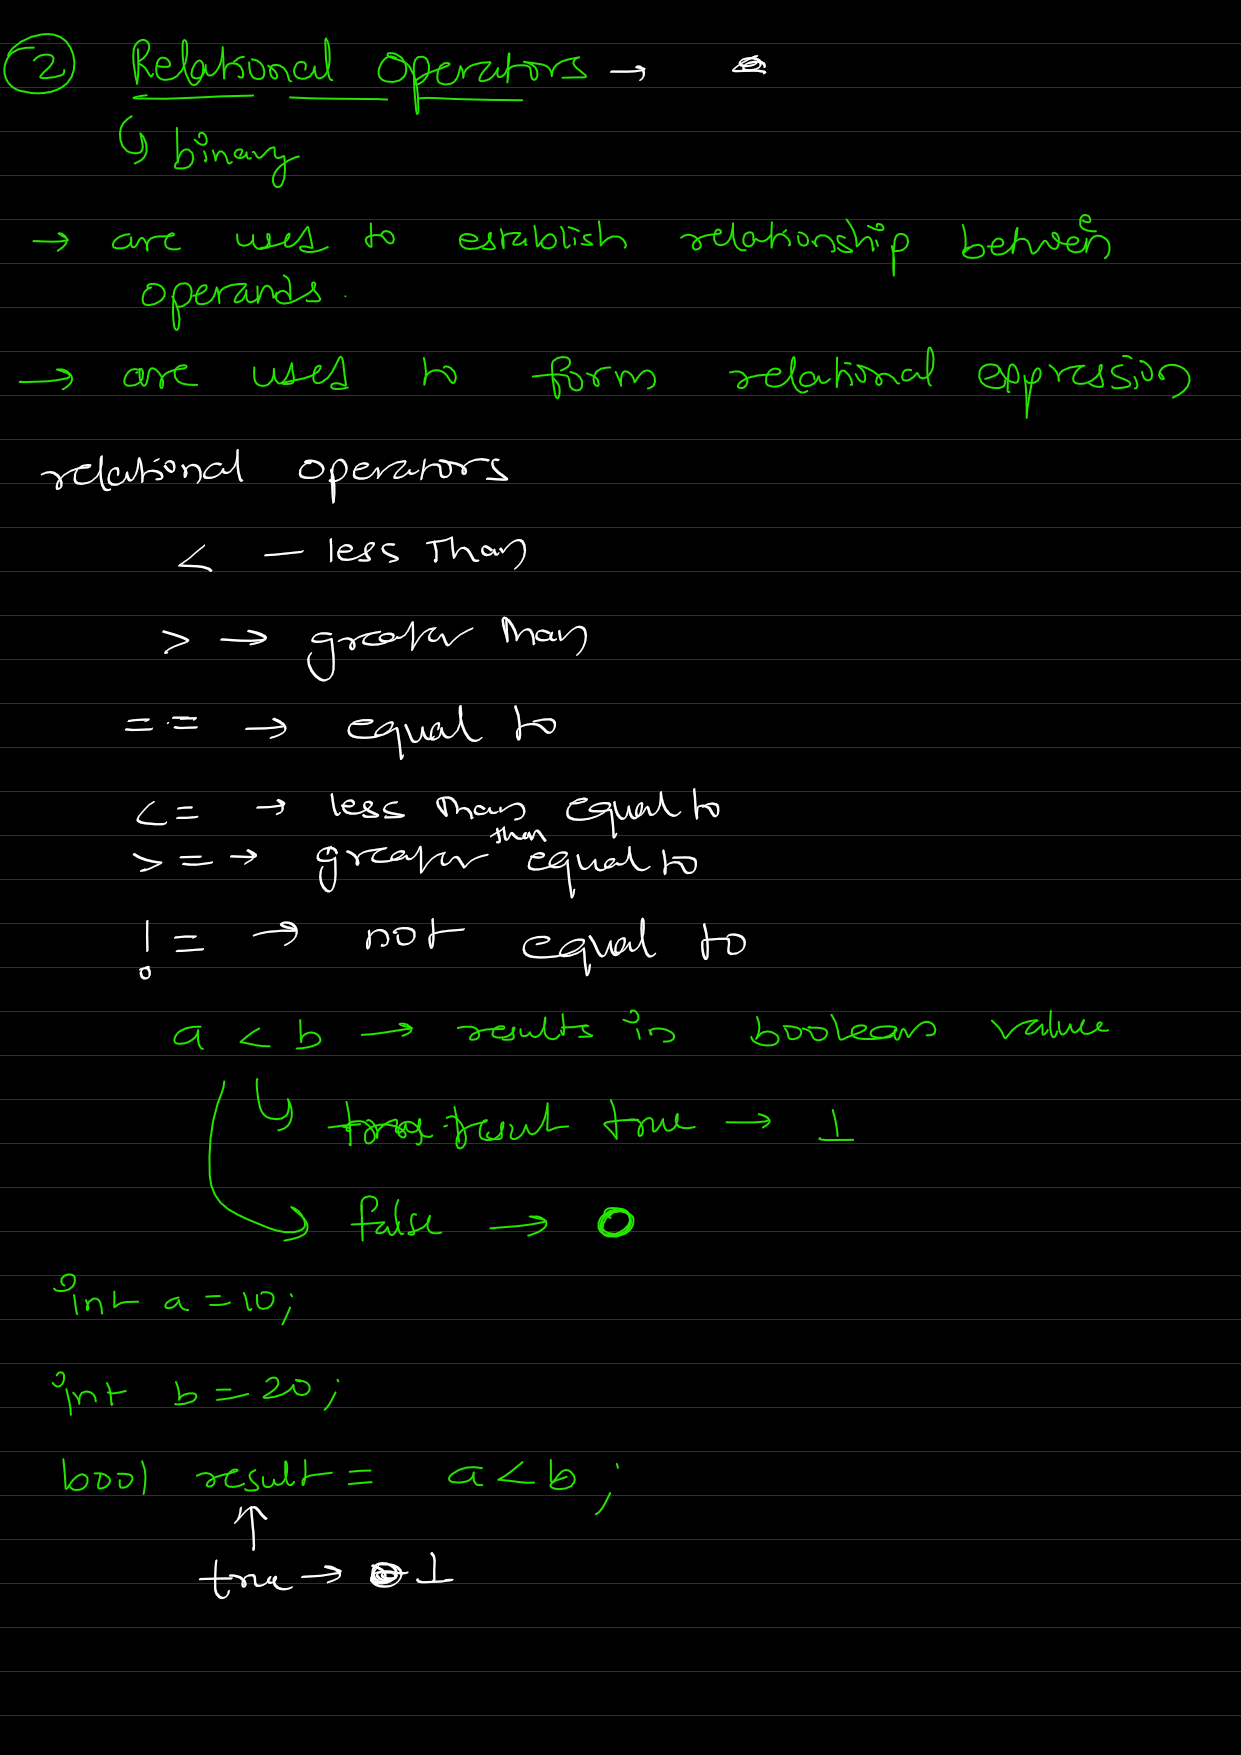 ② Relational Operators →
↳ binary
→ are used to establish relationship between
operands.
→ are used to form relational expression
relational operators
< — less than
> → greater than
== → equal to
<= → less than equal to
>= → greater than equal to
!= → not equal to
a < b → results in boolean value
↳ result true → 1
↳ false → 0
int a = 10;
int b = 20;
bool result = a < b;
↑
true → 1